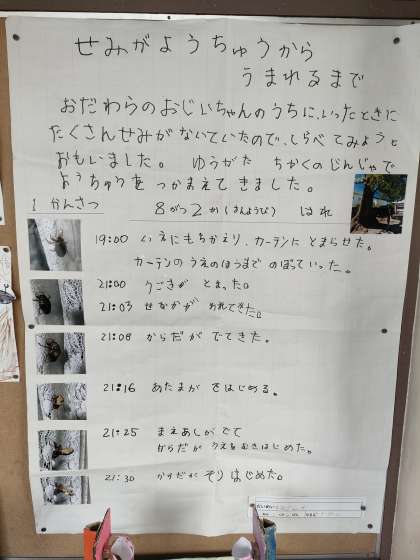 せみがようちゅうから
うまれるまで
おだわらのおじいちゃんのうちに、いったときに
たくさんせみがないていたので、しらべてみようと
おもいました。 ゆうがた ちかくのじんじゃで
ようちゅうを つかまえてきました。
1 かんさつ 8がつ2か(すいようび) はれ
19:00 いえにもちかえり、カーテンに とまらせた。
カーテンのうえのほうまで のぼっていった。
21:00 うごきが とまった。
21:03 せなかが われてきた。
21:08 からだが でてきた。
21:16 あたまが はじめる。
21:25 まえあしがでて
からだが うえをむきはじめた。
21:30 からだが そりはじめた。